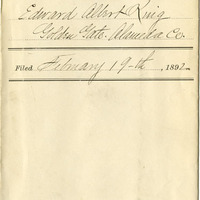 Edward Albert King
Golden Gate. Alameda Co.
Filed February 19-th, 1892